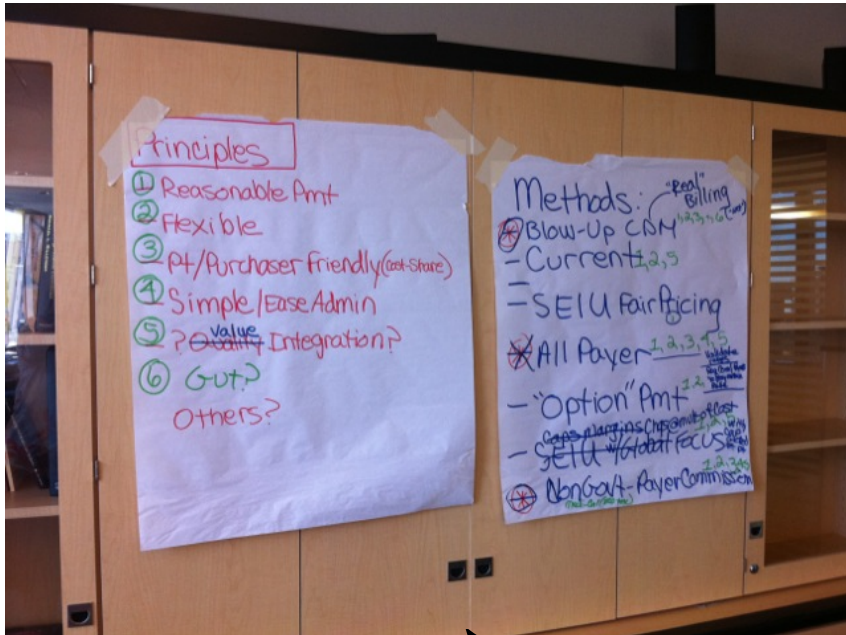 Principles
① Reasonable Amt
② Flexible
③ - Pt/Purchaser Friendly (Cost-Share)
④ - Simple/Ease Admin
⑤ - ? Quality value Integration?
⑥ Gut?
Others?
Methods:
"Real" Billing
* Blow-Up CDM 1,2,3,4,6
- Current 1,2,5
- SEIU Fair Pricing
* All Payer 1,2,3,4,5
- "Option" Pmt 1,2,
Caps Margins Chgs
- SEIU w/Global FOCUS 1,2,5
* NonGovt-Payer Commission